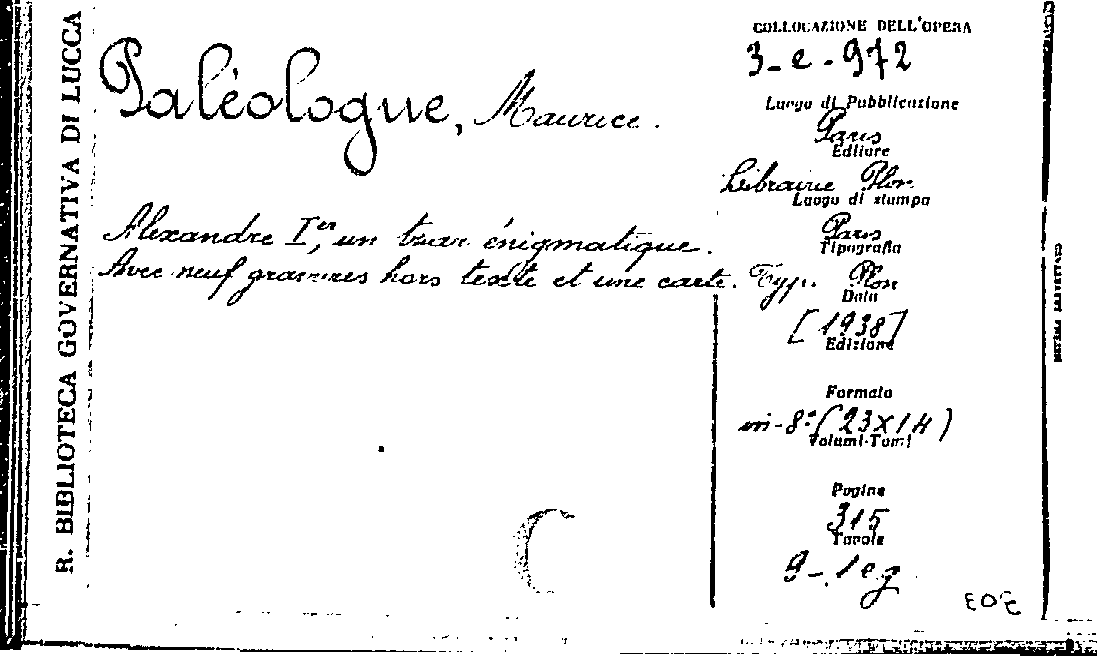 R. BIBLIOTECA GOVERNATIVA DI LUCCA
Paléologue, Maurice.
Alexandre Ier, un tzar énigmatique.
Avec neuf gravures hors texte et une carte.
COLLOCAZIONE DELL'OPERA
3-e-972
Luogo di Pubblicazione
Paris
Editore
Librairie Plon
Luogo di stampa
Paris
Tipografia
Typ. Plon
Data
[1938]
Edizione
Formato
in-8º (23x14)
Volumi-Tomi
Pagine
315
Tavole
9-1 eg
303